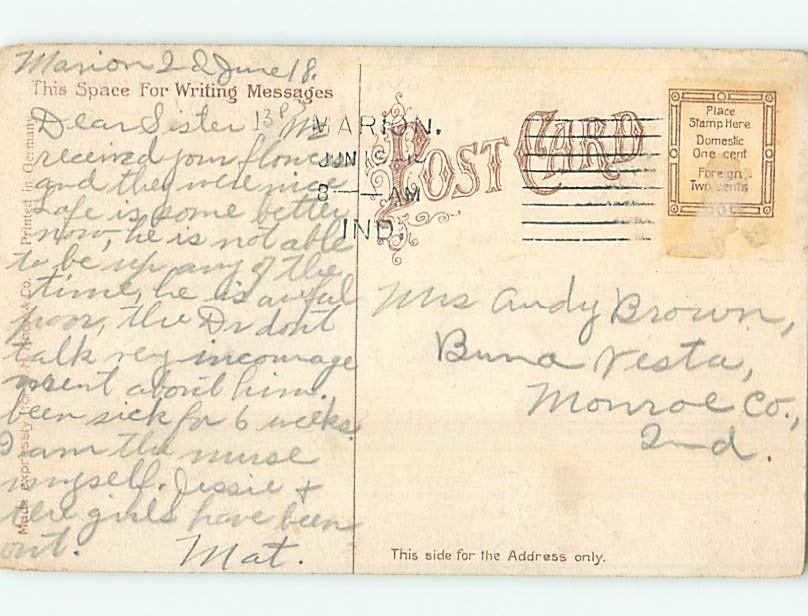 Marion Ind June 18.
This Space For Writing Messages
Dear Sister
received your flowers
and they were nice
Lafe is some better
now, he is not able
to be up any of the
time, he is awful
poor, the Dr dont
talk very incourage
ment about him.
been sick for 6 weeks
I am the nurse
myself. Jessie +
here girls have been
out. Mat.
Made expressly
Printed in Germany
MARION.
JUN
8 — AM
IND.
POST CARD
Place
Stamp Here
Domestic
One cent
Foreign
Two cents
Mrs Andy Brown,
Buna Vesta,
Monroe Co.,
Ind.
This side for the Address only.